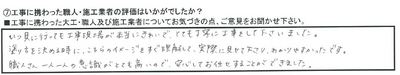 ⑦工事に携わった職人・施工業者の評価はいかがでしたか？
■工事に携わった大工・職人及び施工業者についてお気づきの点、ご意見をお聞かせ下さい。
いつ見に行っても工事現場が本当にきれいで、とても丁寧に工事をして下さいました。
塗りを決める時に、こちらのイメージをすぐ理解して、実際に見せて下さり、わかりやすかったです。
職人さん一人一人の意識がとても高いので、安心してお任せすることができました。